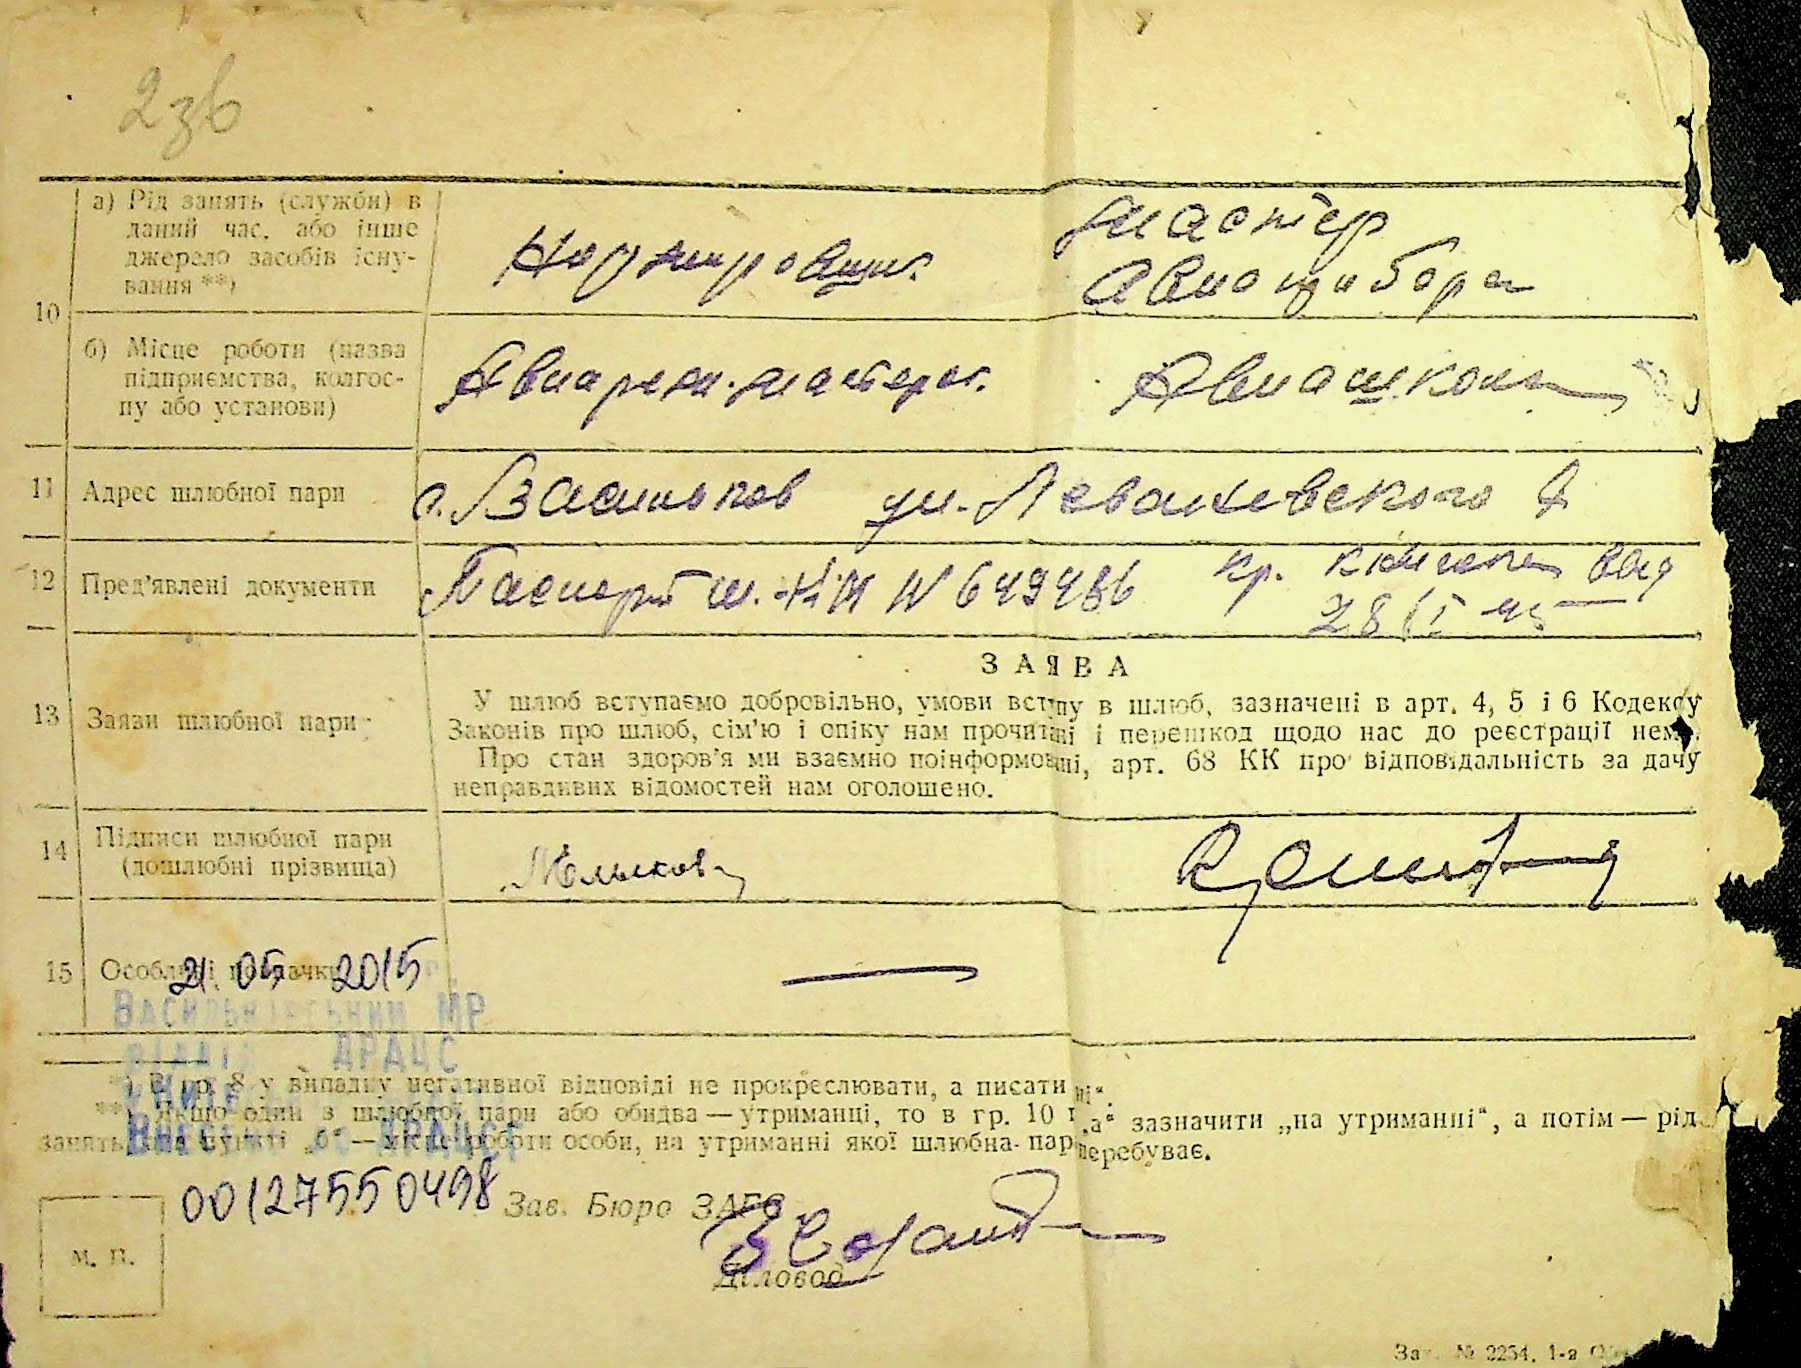 2зв
а) Рід занять (служби) в
даний час, або інше
джерело засобів існу-
вання **)
Нормировщик
мастер
Авиаприбора
10
б) Місце роботи (назва
підприємства, колгос-
пу або установи)
Авиарем. мастерск.
Авиашкола
11 Адрес шлюбної пари г. Васильков ул. Леваневского
12 Пред’явлені документи Паспорт № 649486 кр. книжка
28
ЗАЯВА
13 Заяви шлюбної пари
У шлюб вступаємо добровільно, умови вступу в шлюб, зазначені в арт. 4, 5 і 6 Кодексу
Законів про шлюб, сім’ю і опіку нам прочитані і перешкод щодо нас до реєстрації нема.
Про стан здоров’я ми взаємно поінформовані, арт. 68 КК про відповідальність за дачу
неправдивих відомостей нам оголошено.
14 Підписи шлюбної пари
(дошлюбні прізвища)
15 Особливі позначки
21.05 2015
Васильківський МР
відділ ДРАЦС
*) В гр. 8 у випадку негативної відповіді не прокреслювати, а писати „ні“.
**) Якщо один з шлюбної пари або обидва — утриманці, то в гр. 10 п. „а“ зазначити „на утриманні“, а потім — рід
занять, а в пункті „б“ — місце роботи особи, на утриманні якої шлюбна пара перебуває.
00127550498
Зав. Бюро ЗАГС
М. П.
Діловод
Зак. № 2254. 1-а